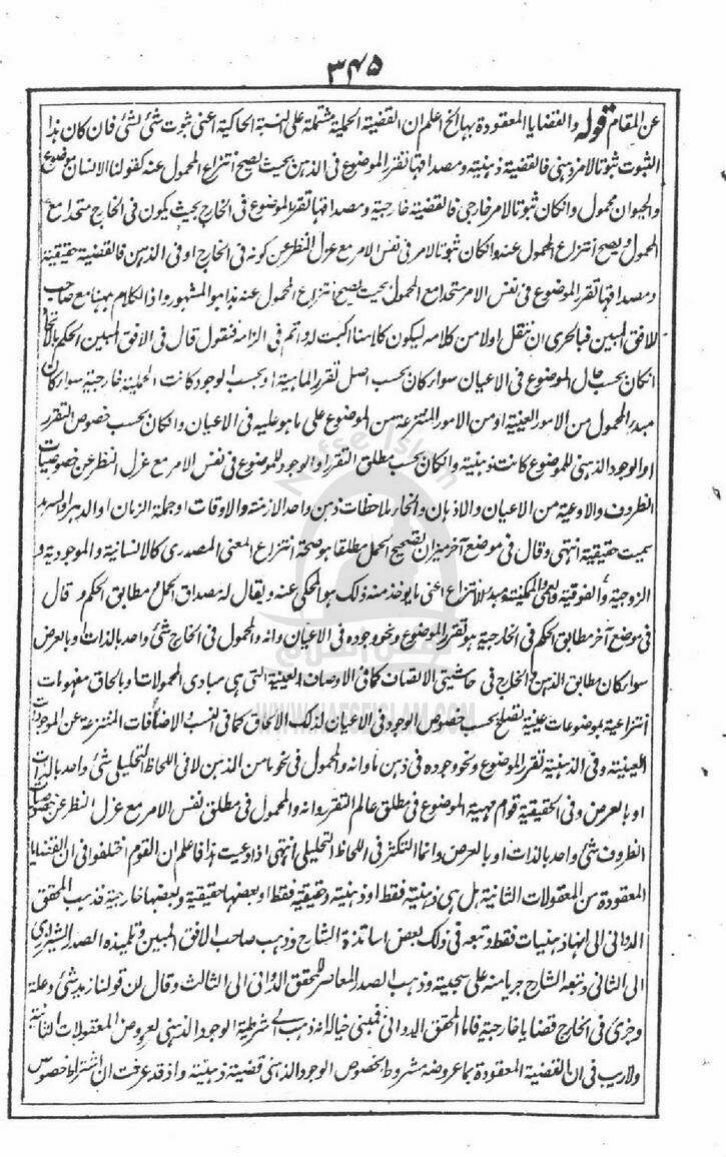 ۳۴۵
عن المقام قوله والقضايا المعقودة بها الخ اعلم ان القضية الحملية مشتملة على النسبة الحاكية اعنى ثبوت شئ لشئ فان كان هذا
الثبوت ثبوتا لامر ذهنى فالقضية ذهنية ومصداقها تقرر الموضوع فى الذهن بحيث يصح انتزاع المحمول عنه كقولنا الانسان موضوع
والحيوان محمول وانكان ثبوتا لامر خارجى فالقضية خارجية ومصداقها تقرر الموضوع فى الخارج بحيث يكون فى الخارج متحدا مع
المحمول ويصح انتزاع المحمول عنه وانكان ثبوتا لامر فى نفس الامر مع عزل النظر عن كونه فى الخارج او فى الذهن فالقضية حقيقية
ومصداقها تقرر الموضوع فى نفس الامر متحدا مع المحمول بحيث يصح انتزاع المحمول عنه هذا هو المشهور واذ الكلام ههنا مع صاحب
الافق المبين فبالحرى ان ننقل اولا من كلامه ليكون كلامنا اكبت له واتم فى الزامه فنقول قال فى الافق المبين الحكم بالاتحاد
انكان بحسب حال الموضوع فى الاعيان سواء كان بحسب اصل تقرر الماهية او بحسب الوجود كانت الحملية خارجية سواء كان
مبدء المحمول من الامور العينية او من الامور المنتزعة من الموضوع على ما هو عليه فى الاعيان وانكان بحسب خصوص التقرر
او الوجود الذهنى للموضوع كانت ذهنية وانكان بحسب مطلق التقرر او الوجود للموضوع فى نفس الامر مع عزل النظر عن خصوصيات
الظروف والاوعية من الاعيان والاذهان وانحاء ملاحظات ذهن واحد الازمنة والاوقات او جملة الزمان او الدهر او السرمد
سميت حقيقية انتهى وقال فى موضع آخر ميزان تصحيح الحمل مطلقا هو صحة انتزاع المعنى المصدرى كالانسانية والموجودية و
الزوجية والفوقية والعمى ومبدء الانتزاع اعنى ما يوخذ منه ذلك هو المحكى عنه ويقال له مصداق الحمل ومطابق الحكم وقال
فى موضع آخر مطابق الحكم فى الخارجية هو تقرر الموضوع ونحو وجوده فى الاعيان وانه والمحمول فى الخارج شئ واحد بالذات او بالعرض
سواء كان مطابق الذهن الخارج فى حاشيتى الاتصاف كما فى الاوصاف العينية التى هى مبادى المحمولات او بالحاق مفهومات
انتزاعية بموضوعات عينية تصلح بحسب خصوص الوجود فى الاعيان لذلك الالحاق كما فى النسب الاضافات المنتزعة عن الموجودات
العينية وفى الذهنية تقرر الموضوع ونحو وجوده فى ذهن ما وانه والمحمول فى نحو ما من الذهن لا فى اللحاظ التحليلى شئ واحد بالذات
او بالعرض وفى الحقيقية قوام مهية الموضوع فى مطلق عالم التقرر وانه والمحمول فى مطلق نفس الامر مع عزل النظر عن خصوصيات
الظروف شئ واحد بالذات او بالعرض وانما التكثر فى اللحاظ التحليلى انتهى اذا وعيت هذا فاعلم ان القوم اختلفوا فى ان القضايا
المعقودة من المعقولات الثانية هل هى ذهنية فقط او ذهنية وحقيقية فقط او بعضها حقيقية وبعضها خارجية فذهب المحقق
الدوانى الى انها ذهنيات فقط وتبعه فى ذلك بعض اساتذة الشارح وذهب صاحب الافق المبين وتلميذه الصدر الشيرازى
الى الثانى وتبعه الشارح جريا منه على سجيته وذهب الصدر المعاصر للمحقق الدوانى الى الثالث وقال ان قولنا زيد شئ وعلة
وجزئى فى الخارج قضايا خارجية فاما المحقق الدوانى فمبنى خياله انه ذهب الى شرطية الوجود الذهنى لعروض المعقولات الثانية
ولا ريب فى ان القضية المعقودة بما عروضه مشروط بخصوص الوجود الذهنى قضية ذهنية واذ قد عرفت ان اشتراط خصوص
Nafse Islam
WWW.NAFSEISLAM.COM